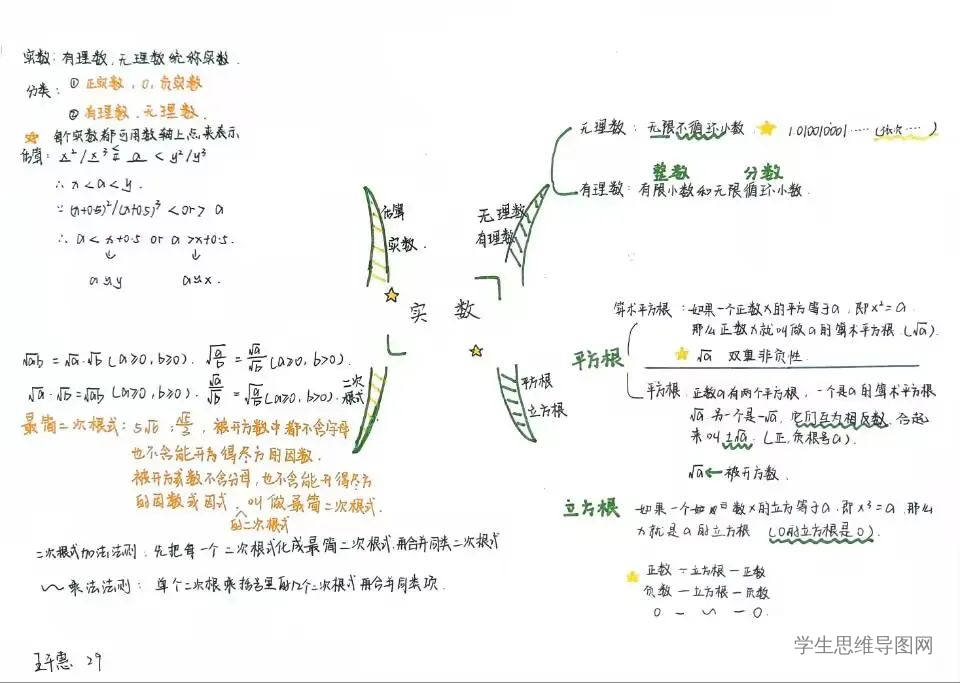 实数：有理数，无理数统称实数．
分类：① 正实数，0，负实数
② 有理数．无理数．
每个实数都可用数轴上点来表示
估算：x²/x³ ≤ a < y²/y³
∴ x < a < y．
∵ (x+0.5)²/(x+0.5)³ < or > a
∴ a < x+0.5 or a > x+0.5．
↓ ↓
a≈y a≈x．
估算
实数．
无理数
有理数
无理数：无限不循环小数，1.010010001······（依次····）
整数 分数
有理数：有限小数和无限循环小数．
实 数
平方根
立方根
二次
根式
√ab = √a·√b (a≥0，b≥0)．√(a/b) = √a/√b (a≥0，b>0)．
√a·√b = √ab (a≥0，b≥0)．√a/√b = √(a/b) (a≥0，b>0)．
最简二次根式：5√6；√5/2，被开方数中都不含字母
也不含能开得尽方的因数．
被开方数不含分母，也不含能开得尽方
的因数或因式，叫做最简二次根式．
的二次根式
二次根式加法法则：先把每一个二次根式化成最简二次根式，再合并同类二次根式
～ 乘法法则：单个二次根乘括号里的几个二次根式再合并同类项．
平方根
算术平方根：如果一个正数x的平方等于a，即x²=a．
那么正数x就叫做a的算术平方根（√a）．
√a 双重非负性
平方根．正数a有两个平方根，一个是a的算术平方根
√a 另一个是-√a，它们互为相反数，合起
来叫±√a．（正，负根号a）．
√a ← 被开方数．
立方根
如果一个数x的立方等于a，即x³=a．那么
x就是a的立方根（0的立方根是0）．
正数 — 立方根 — 正数
负数 — 立方根 — 负数
0 — ～ — 0．
29
学生思维导图网